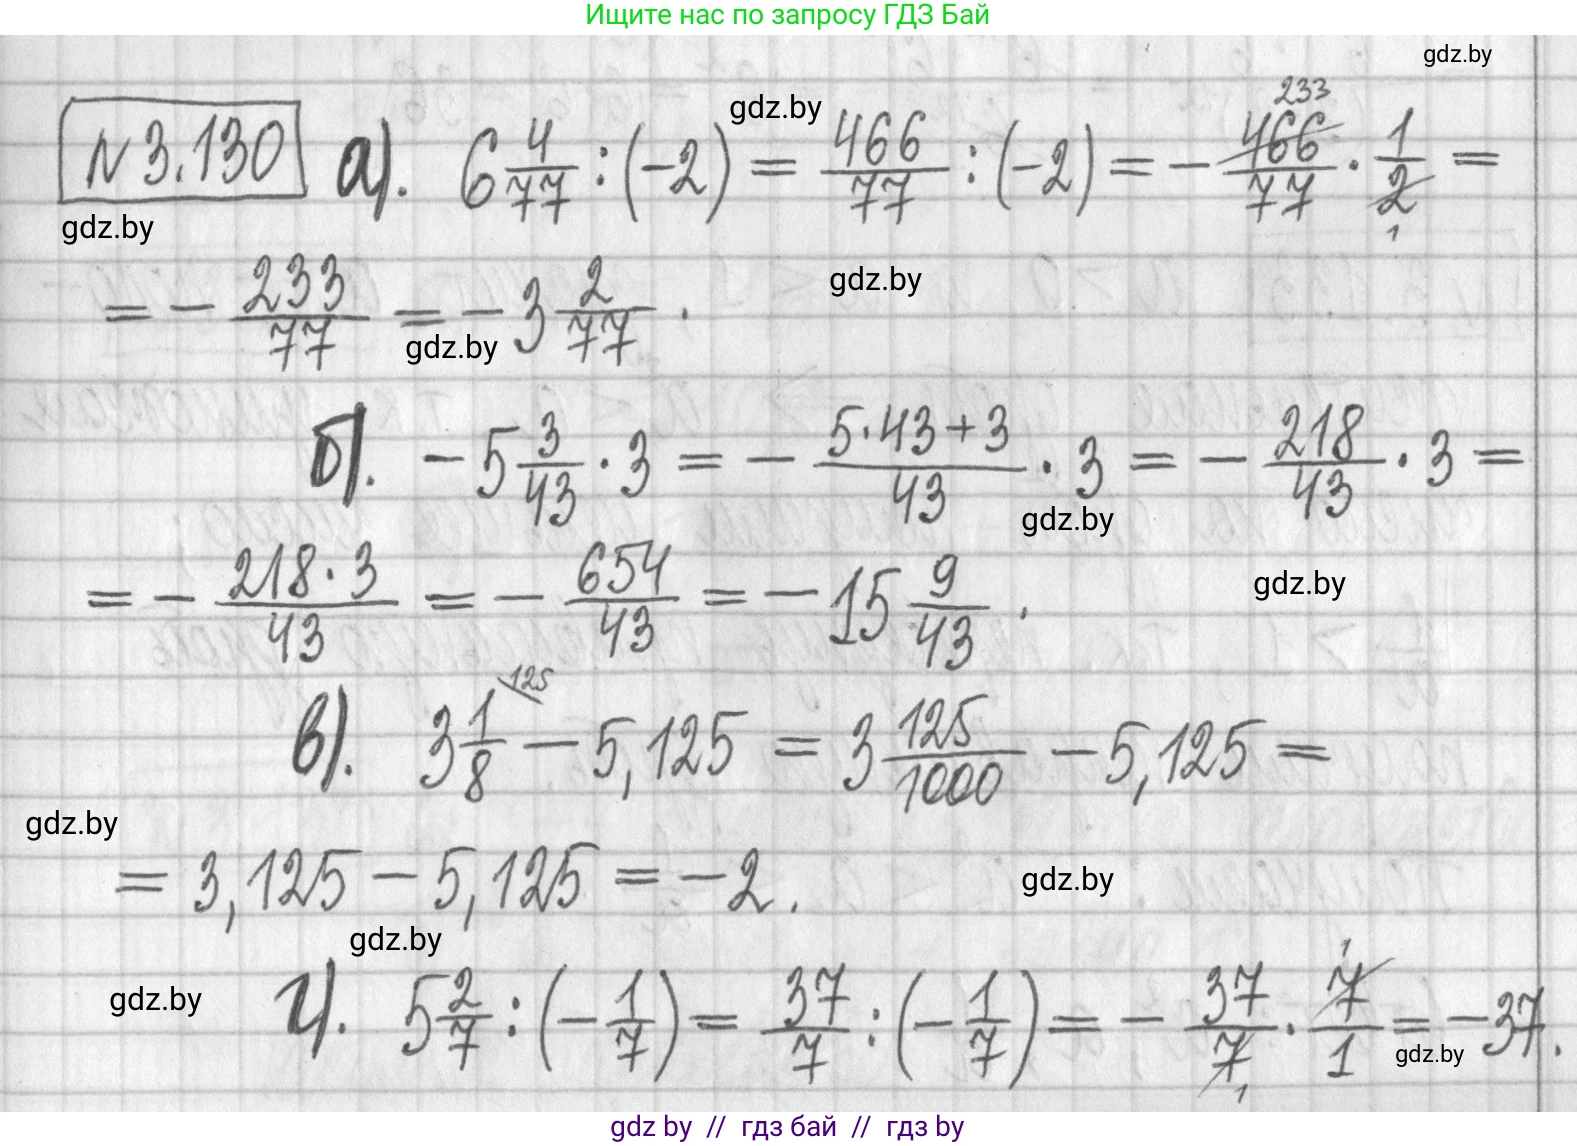 Ищите нас по запросу ГДЗ Бай
gdz.by
gdz.by
№3.130 а). 6 4/77 : (-2) = 466/77 : (-2) = - 466/77 · 1/2 =
233
1
gdz.by
gdz.by
= - 233/77 = - 3 2/77 .
gdz.by
б). - 5 3/43 · 3 = - 5·43+3/43 · 3 = - 218/43 · 3 =
gdz.by
gdz.by
= - 218·3/43 = - 654/43 = - 15 9/43 .
125
в). 3 1/8 - 5,125 = 3 125/1000 - 5,125 =
gdz.by
= 3,125 - 5,125 = - 2 .
gdz.by
gdz.by
gdz.by
г). 5 2/7 : (- 1/7) = 37/7 : (- 1/7) = - 37/7 · 7/1 = - 37.
1
1
gdz.by
gdz by // гдз бай // гдз by